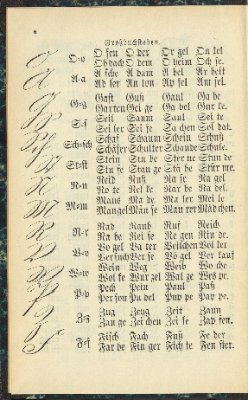 Großbuchstaben.
O-o O fen O der Or gel On kel
Ob dach O dem O heim Och se.
A-a A sche A dam A bel Ar beit
Ad ler An ton Ap fel Am sel.
G-g Gast Guß Gaul Ga be
Garten Gei ge Ga bel Gur ke.
S-s Seil Saum Saul See
Sei ler Sei fe Sa chen Sei del
Sch-sch Schaf Schaum Schein Schuh
Schäfer Schulter Schau fel
St-st Stein Stu be Ster ne Stun de
Ste in Stan ge Stä be Stär me.
N-n Neid Nuß Na se Na gel
No te Nel ke Nar be Na del.
M-m Maus Ma de Ma ler Mei le
Mangel Mäu se Mau rer Mädchen.
R-r Rad Raub Ruf Reich
Ra be Rei se Re gen Rin de.
V-v Vo gel Va ter Veilchen Vol ler
Ver lust
W-w Wein Weg Weib Wo che
Wol ke Wur zel Wal ze Wes pe.
P-p Pech Pein Paul Paß
Per son Pu del Pup pe Pap pe.
Z-z Zug Zeug Zeit Zaun
Zan ge Zei chen Zei le Zap fen.
F-f Fisch Fach Fuß Fe der
Far be Fin ger Fich te Fen ster.